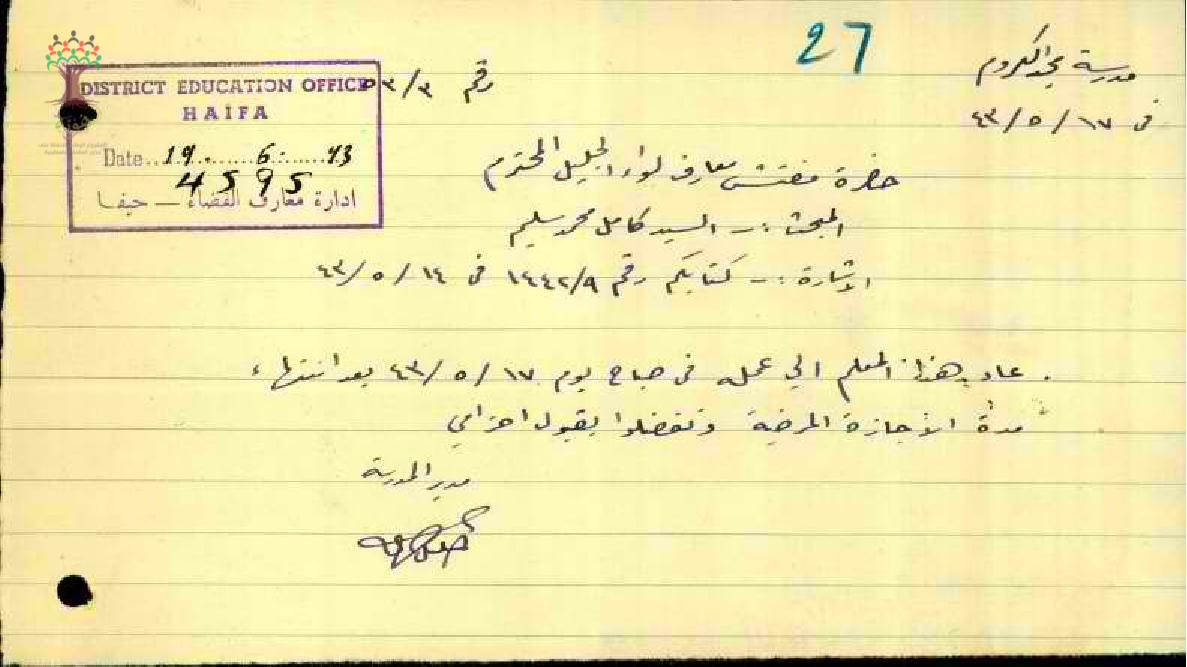 27
مدرسة مجد الكروم
في ١٧ / ٥ / ٤٣
رقم ٥٣/٣
DISTRICT EDUCATION OFFICE
HAIFA
Date..19......6......43
4595
ادارة معارف القضاء — حيفا
حضرة مفتش معارف لواء الجليل المحترم
المبحث :- السيد كامل محمد سليم
الاشارة :- كتابكم رقم ١٤٤٢/٩ في ١٤ / ٥ / ٤٣
عاد هذا المعلم الى عمله في صباح يوم ١٧ / ٥ / ٤٣ بعد انتهاء
مدة الأجازة المرضية وتفضلوا بقبول احترامي
مدير المدرسة